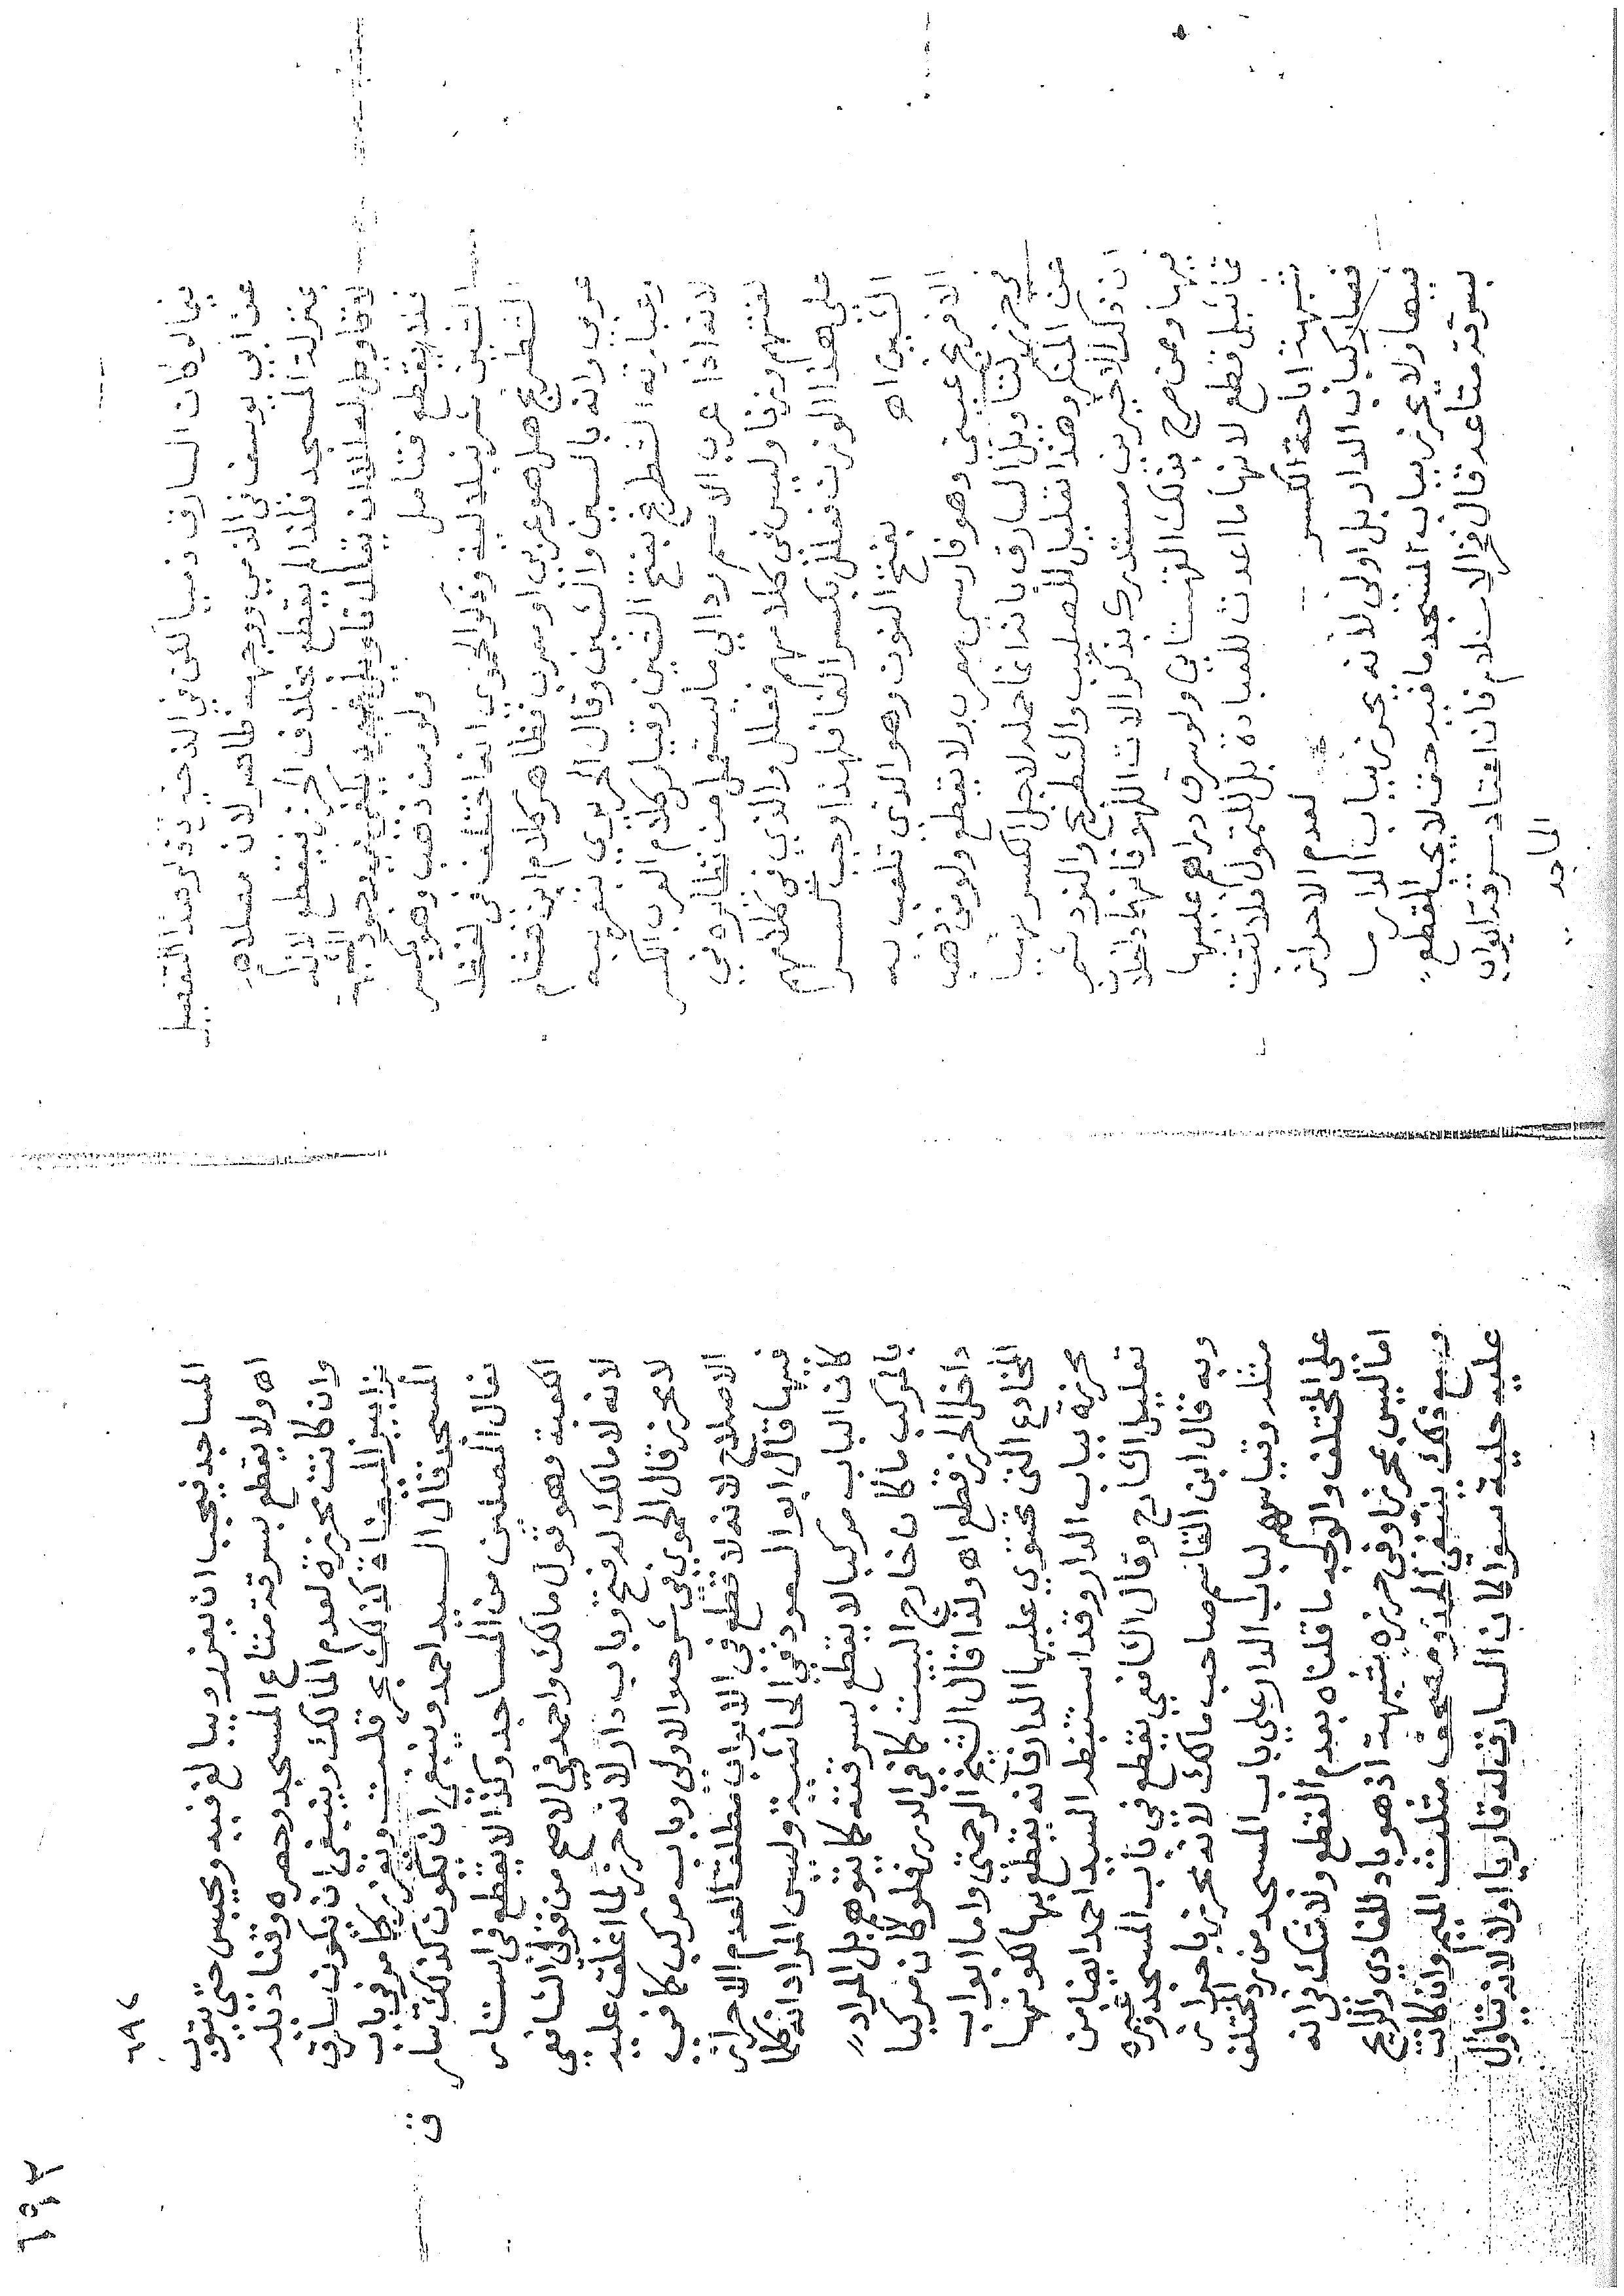 فيما لو كان السارق ذميا لكن في الذخيرة ذكر هذا التفصيل
عن ابي يوسف في الذمي ووجهه ظاهر لان مصلاهم
بمنزلة المسجد فلذا لم يقطع بخلاف الحرز فيقطع لانه
لا تاويل له الا ان يقال تاويل غيره يكفي في وجود الشبهة
فلا يقطع فتامل ولو من ذهب وهو بكسر
الشين شرنبلالية وذكر الحموي انه اختلف في لفظ
الشطرنج هل هو عربي او معرب فظاهر كلام ابن هشام
عربي وانه بالسين والشين وقال الحريري بتعريبه
وعبارته الشطرنج بفتح الشين وقياس كلام العرب الكسر
لانه اذا عرب الاسم رد الى ما يستعمل من نظائره في
لغتهم وزنا وليس في كلامهم فعلل والذي في كلامهم
على هذا الوزن فعلل بكسر الفا فلهذا وجب كسر
الشين اه بفتح النون وهو الذي تلعب به
الافرنج عيني وهو فارسي معرب ولا يقطع ولو في
حرز لتاويل السارق بانه انما حمله لاجل الكسر نهيا
عن المنكر وهذا تعليل للصليب والشطرنج والنرد ثم
ان ذكر الاخيرين مستدرك بذكر الات اللهو فانهما داخلان
فيها وممن صرح بذلك القهستاني ولو سرق دراهم عليها
تماثيل قطع لانها ما اعدت للعبادة بل للتمول فلا تثبت
شبهة اباحة الكسر لعدم الاحراز
فصار كباب الدار بل اولى لانه يحرز بباب الدار ما
فيها ولا يحرز بباب المسجد ما فيه حتى لا يجب القطع
بسرقة متاعه قال فخر الاسلام فان اعتاد سرقة ابواب
المساجد
٦٩٧
المساجد فيجب ان يعزر ويبالغ فيه ويحبس حتى يتوب
اه ولا يقطع بسرقة متاع المسجد وحصره وقناديله
وان كانت محرزة لعدم المالك وينبغي ان تكون سارق
بزابيز الميضاة كذلك بحر قلت ويعزر كما مر في باب
المسجد قال السيد احمد وينبغي ان يكون كذلك سارق
نعال المصلين من المساجد وكذا لا يقطع في استار
الكعبة وهو قول مالك واحمد في الاصح من قولي الشافعي
لانه لا مالك له فتح وباب دار لانه حرز لما اغلق عليه
لا محرز قال الحموي في شرحه الاولى وباب مركب كما في
الاصلاح لانه لا قطع في الابواب مطلقا لعدم الاحراز
فيها قال ابو السعود في الحاشية وليس المراد انه كلما
كان الباب مركبا لا يقطع بسرقته كما يتوهم بل المراد
بالمركب ما كان خارج البيت كما في الدرر فلو كان مركبا
داخل الحرز قطع اه ولذا قال الشيخ الرحمتي واما ابواب
المخادع التي تحتوي عليها الدار فانه يقطع بها لكونها
محرزة بباب الدار وقد استنظر السيد احمد ايضا من
تعليل الشارح وقال الشافعي يقطع في باب المسجد وغيره
وبه قال ابن القاسم صاحب مالك لانه محرز باحراز
مثله وقياسهم لباب الدار على باب المسجد من رد المختلف
على المختلف والوجه ما قلناه بعدم القطع ولا شك في انه
اما ليس بحرز او في حرزه شبهة اذ هو باد للغادي والرايح
وبوجود ذلك ينتفي الحد ومصحف مثلث الميم وان كانت
عليه حلية سوا كان السارق له قاريا او لا لانه يتاول
٦٩٢